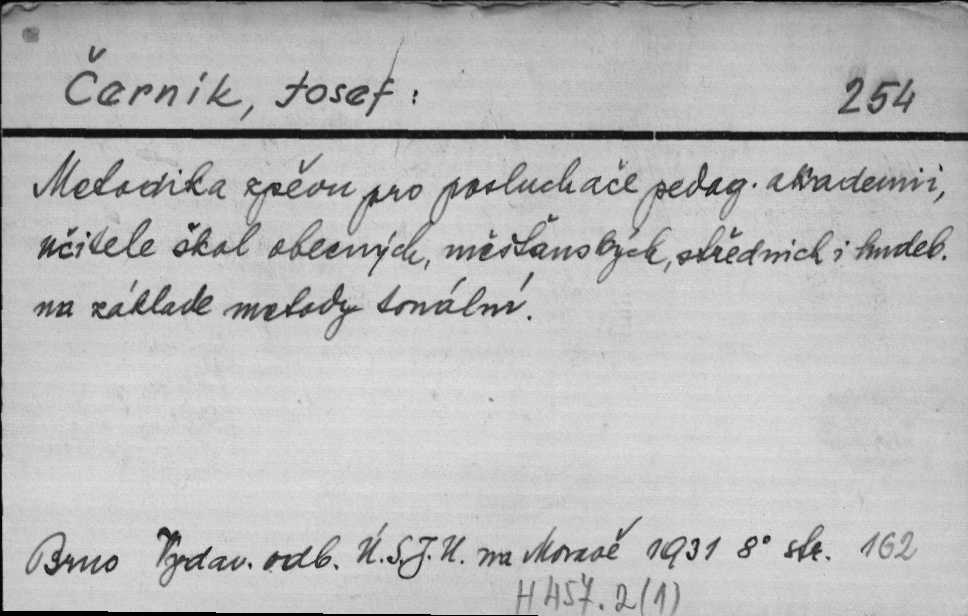 Černik, Josef: 254
Metodika zpěvu pro posluchače pedag. akademii,
učitele škol obecných, měšťanských, střednich i hudeb.
na základe metody tonální.
Brno Vydav. odb. Ú.S.J.U. na Moravě 1931 8° str. 162
H 457.2(1)